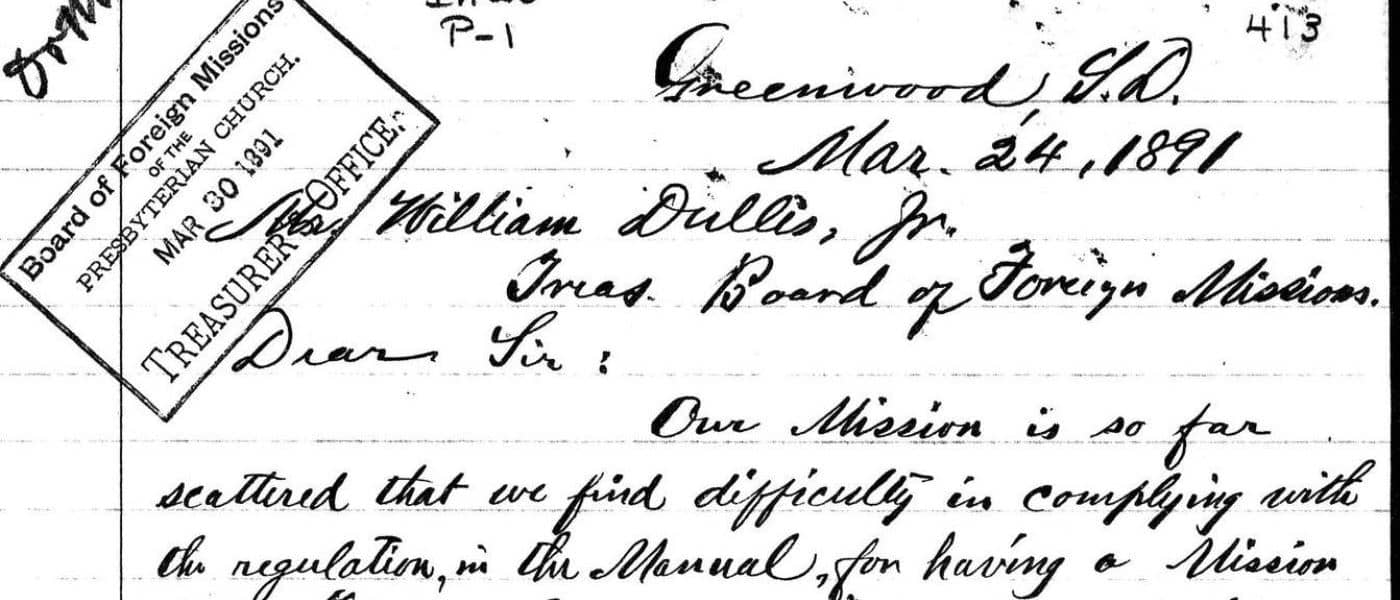 P-1
413
Board of Foreign Missions
OF THE
PRESBYTERIAN CHURCH.
MAR 30 1891
TREASURER'S OFFICE.
Greenwood, S.D.
Mar. 24, 1891
William Dullis, Jr.
Treas. Board of Foreign Missions.
Dear Sir:
Our Mission is so far
scattered that we find difficulty in complying with
the regulation, in the Manual, for having a Mission